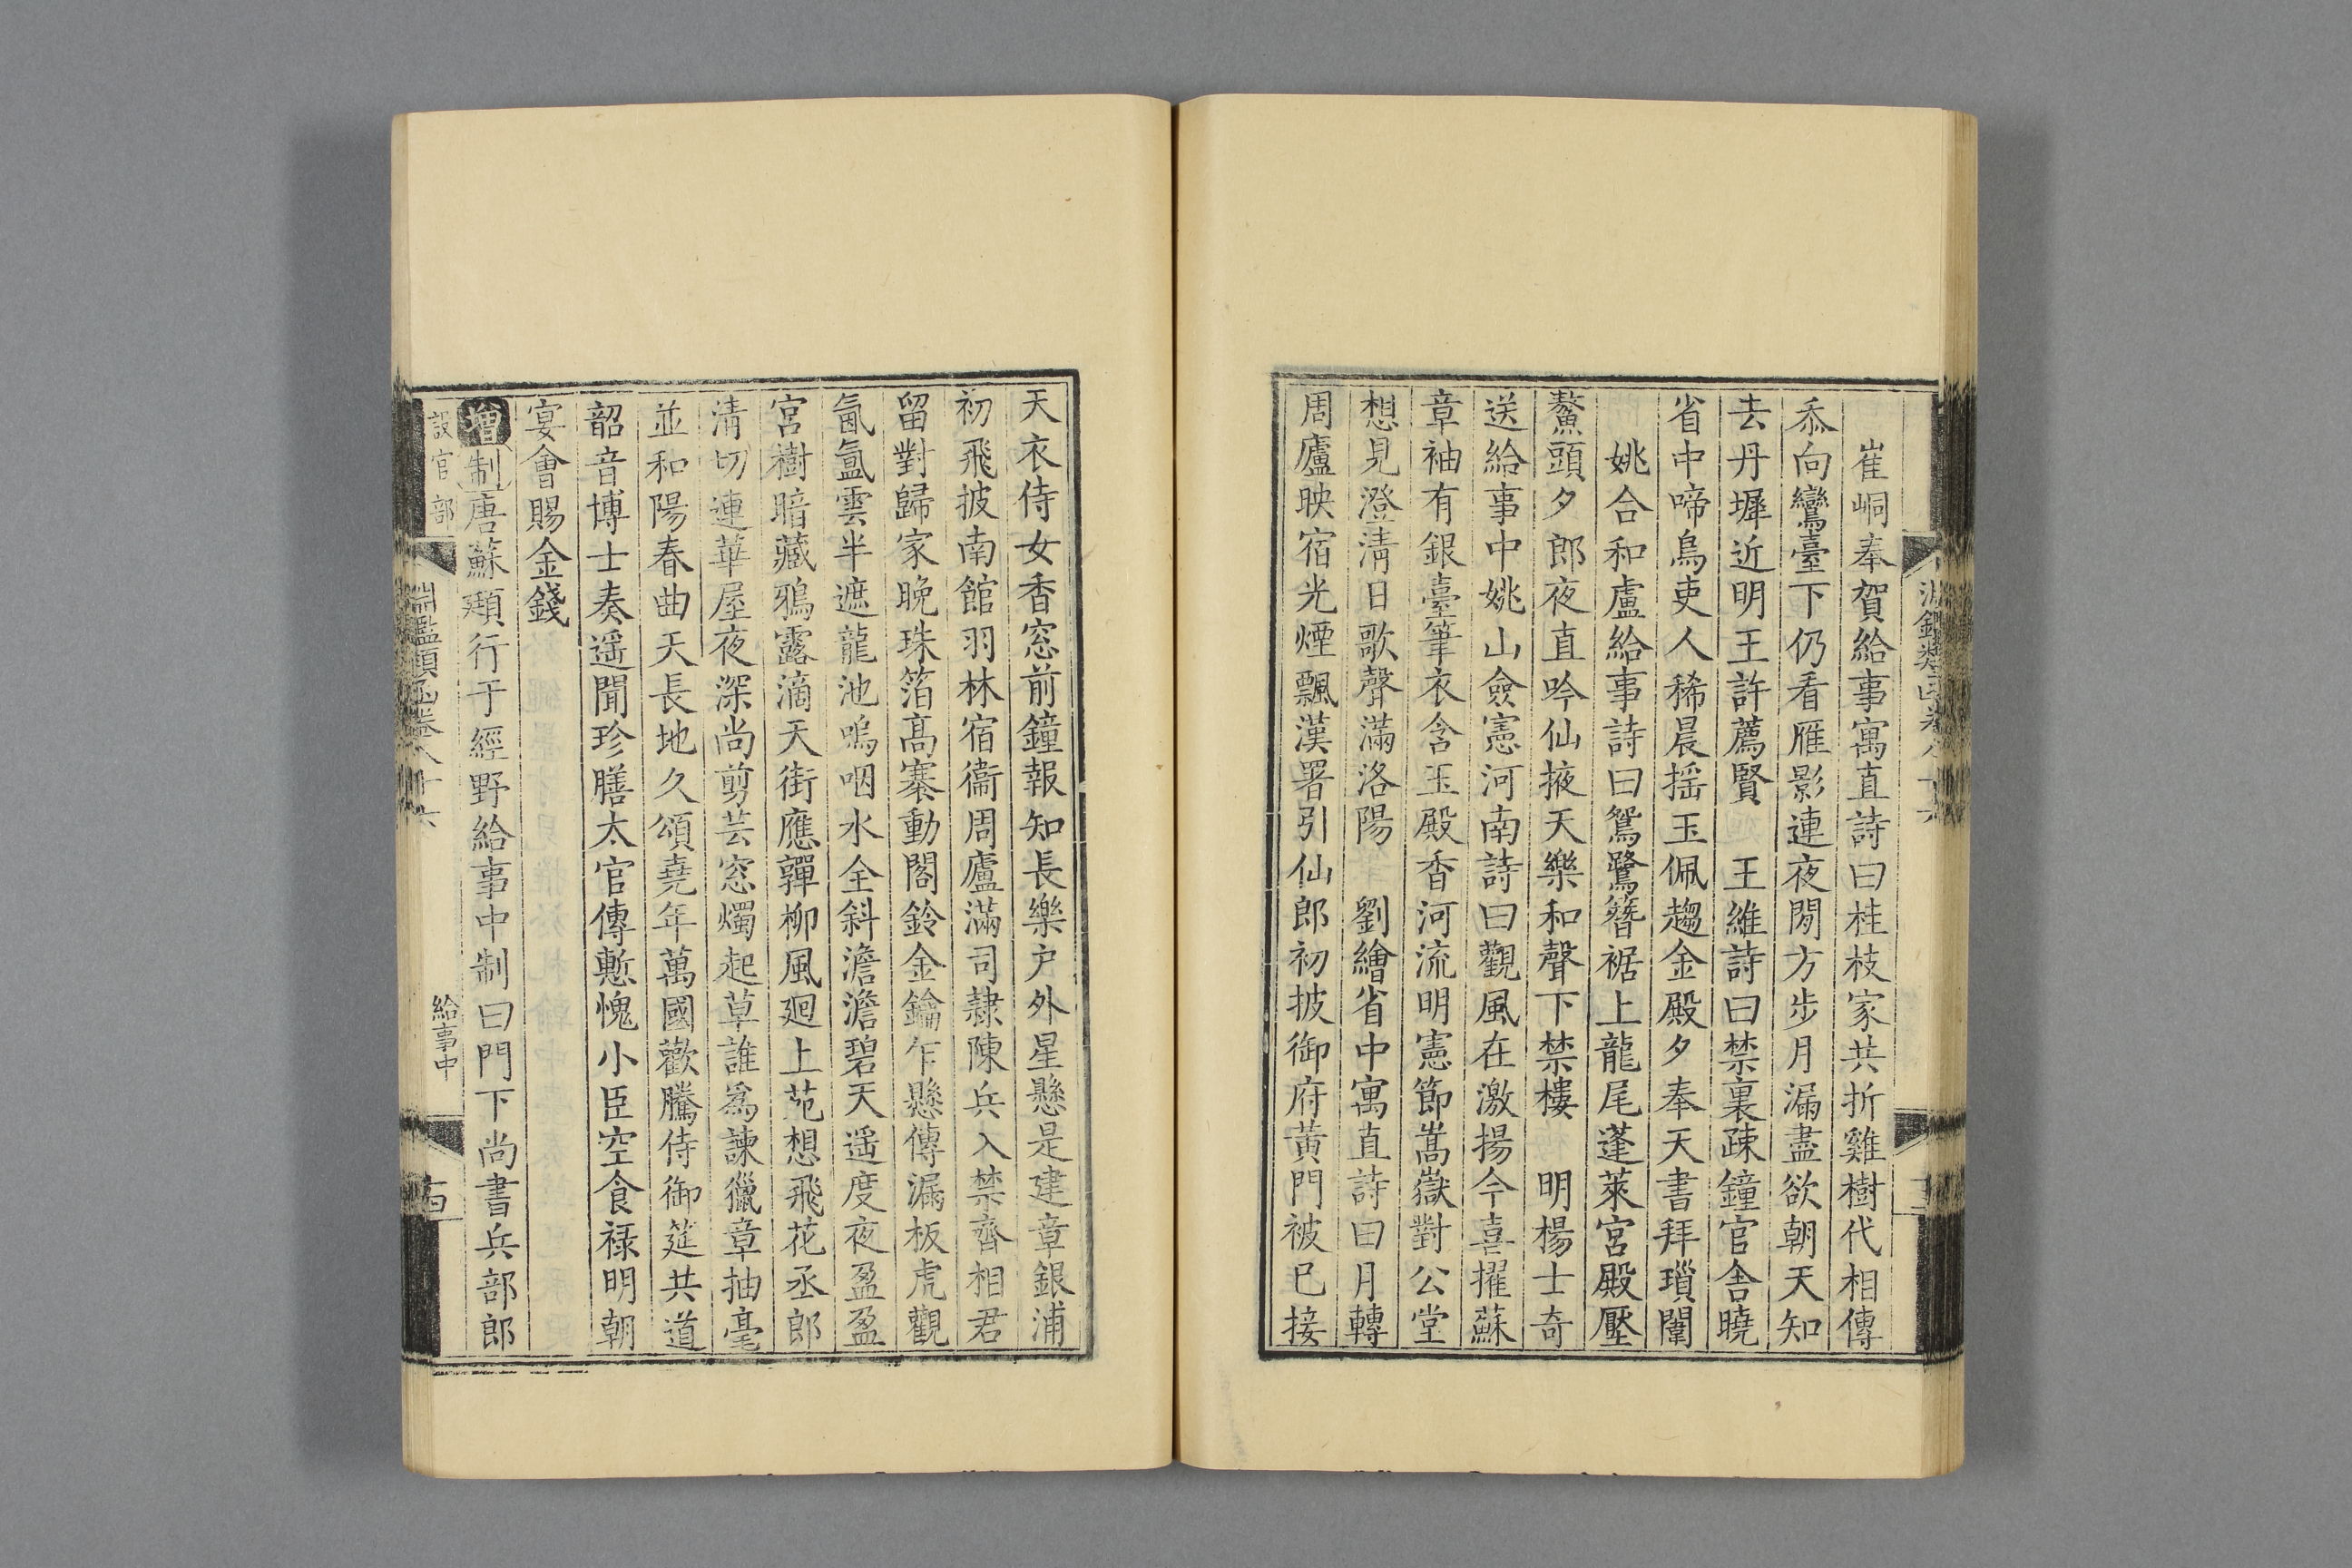 淵鑑類函卷八十六
崔峒奉賀給事寓直詩曰桂枝家共折雞樹代相傳
忝向鸞臺下仍看雁影連夜閒方步月漏盡欲朝天知
去丹墀近明王許薦賢 王維詩曰禁裏疎鐘官舍曉
省中啼鳥吏人稀晨揺玉佩趨金殿夕奉天書拜瑣闈
姚合和盧給事詩曰鴛鷺簪裾上龍尾蓬萊宮殿壓
鰲頭夕郎夜直吟仙掖天樂和聲下禁樓 明楊士奇
送給事中姚山僉憲河南詩曰觀風在激揚今喜擢蘇
章袖有銀臺筆衣含玉殿香河流明憲節嵩嶽對公堂
想見澄清日歌聲滿洛陽 劉繪省中寓直詩曰月轉
周廬映宿光煙飄漢署引仙郎初披御府黃門被巳接
天衣侍女香窓前鐘報知長樂户外星懸是建章銀浦
初飛披南館羽林宿衞周廬滿司隷陳兵入禁齊相君
留對歸家晚珠箔髙褰動閣鈴金鑰乍懸傳漏板虎觀
氤氳雲半遮龍池鳴咽水全斜澹澹碧天遥度夜盈盈
宮樹暗藏鴉露滴天街應嚲柳風廻上苑想飛花丞郎
清切連華屋夜深尚剪芸窓燭起草誰爲諫獵章抽毫
並和陽春曲天長地久頌堯年萬國歡騰侍御筵共道
韶音博士奏遥聞珍膳太官傳慙愧小臣空食禄明朝
宴會賜金錢
增制唐蘇頲行于經野給事中制曰門下尚書兵部郎
設官部 淵鑑類函卷八十六 給事中 十四